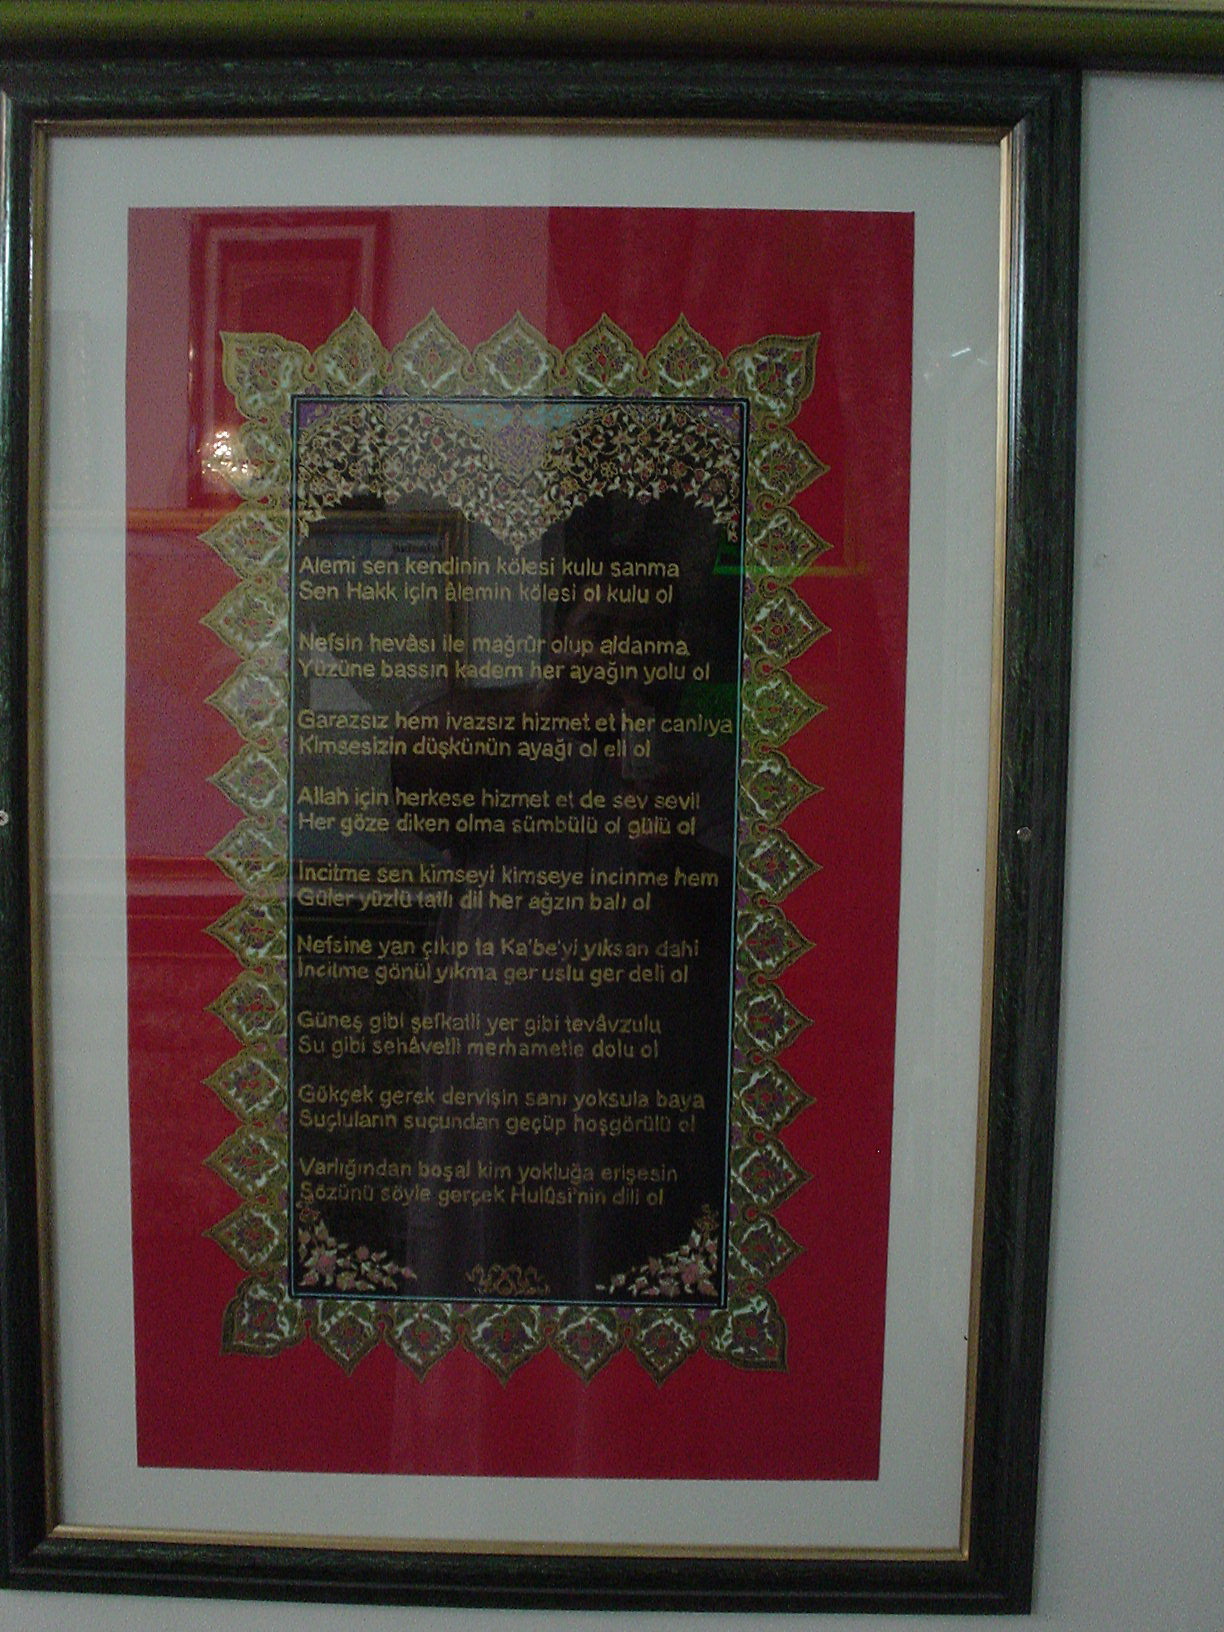 Alemi sen kendinin kölesi kulu sanma
Sen Hakk için âlemin kölesi ol kulu ol
Nefsin hevâsı ile mağrûr olup aldanma
Yüzüne bassın kadem her ayağın yolu ol
Garazsız hem ivazsız hizmet et her canlıya
Kimsesizin düşkünün ayağı ol eli ol
Allah için herkese hizmet et de sev sevil
Her göze diken olma sümbülü ol gülü ol
İncitme sen kimseyi kimseye incinme hem
Güler yüzlü tatlı dil her ağzın balı ol
Nefsine yan çıkıp ta Ka'be'yi yıksan dahi
İncitme gönül yıkma ger uslu ger deli ol
Güneş gibi şefkatli yer gibi tevâvzulu
Su gibi sehâvetli merhametle dolu ol
Gökçek gerek dervişin sanı yoksula baya
Suçluların suçundan geçüp hoşgörülü ol
Varlığından boşal kim yokluğa erişesin
Sözünü söyle gerçek Hulûsi'nin dili ol